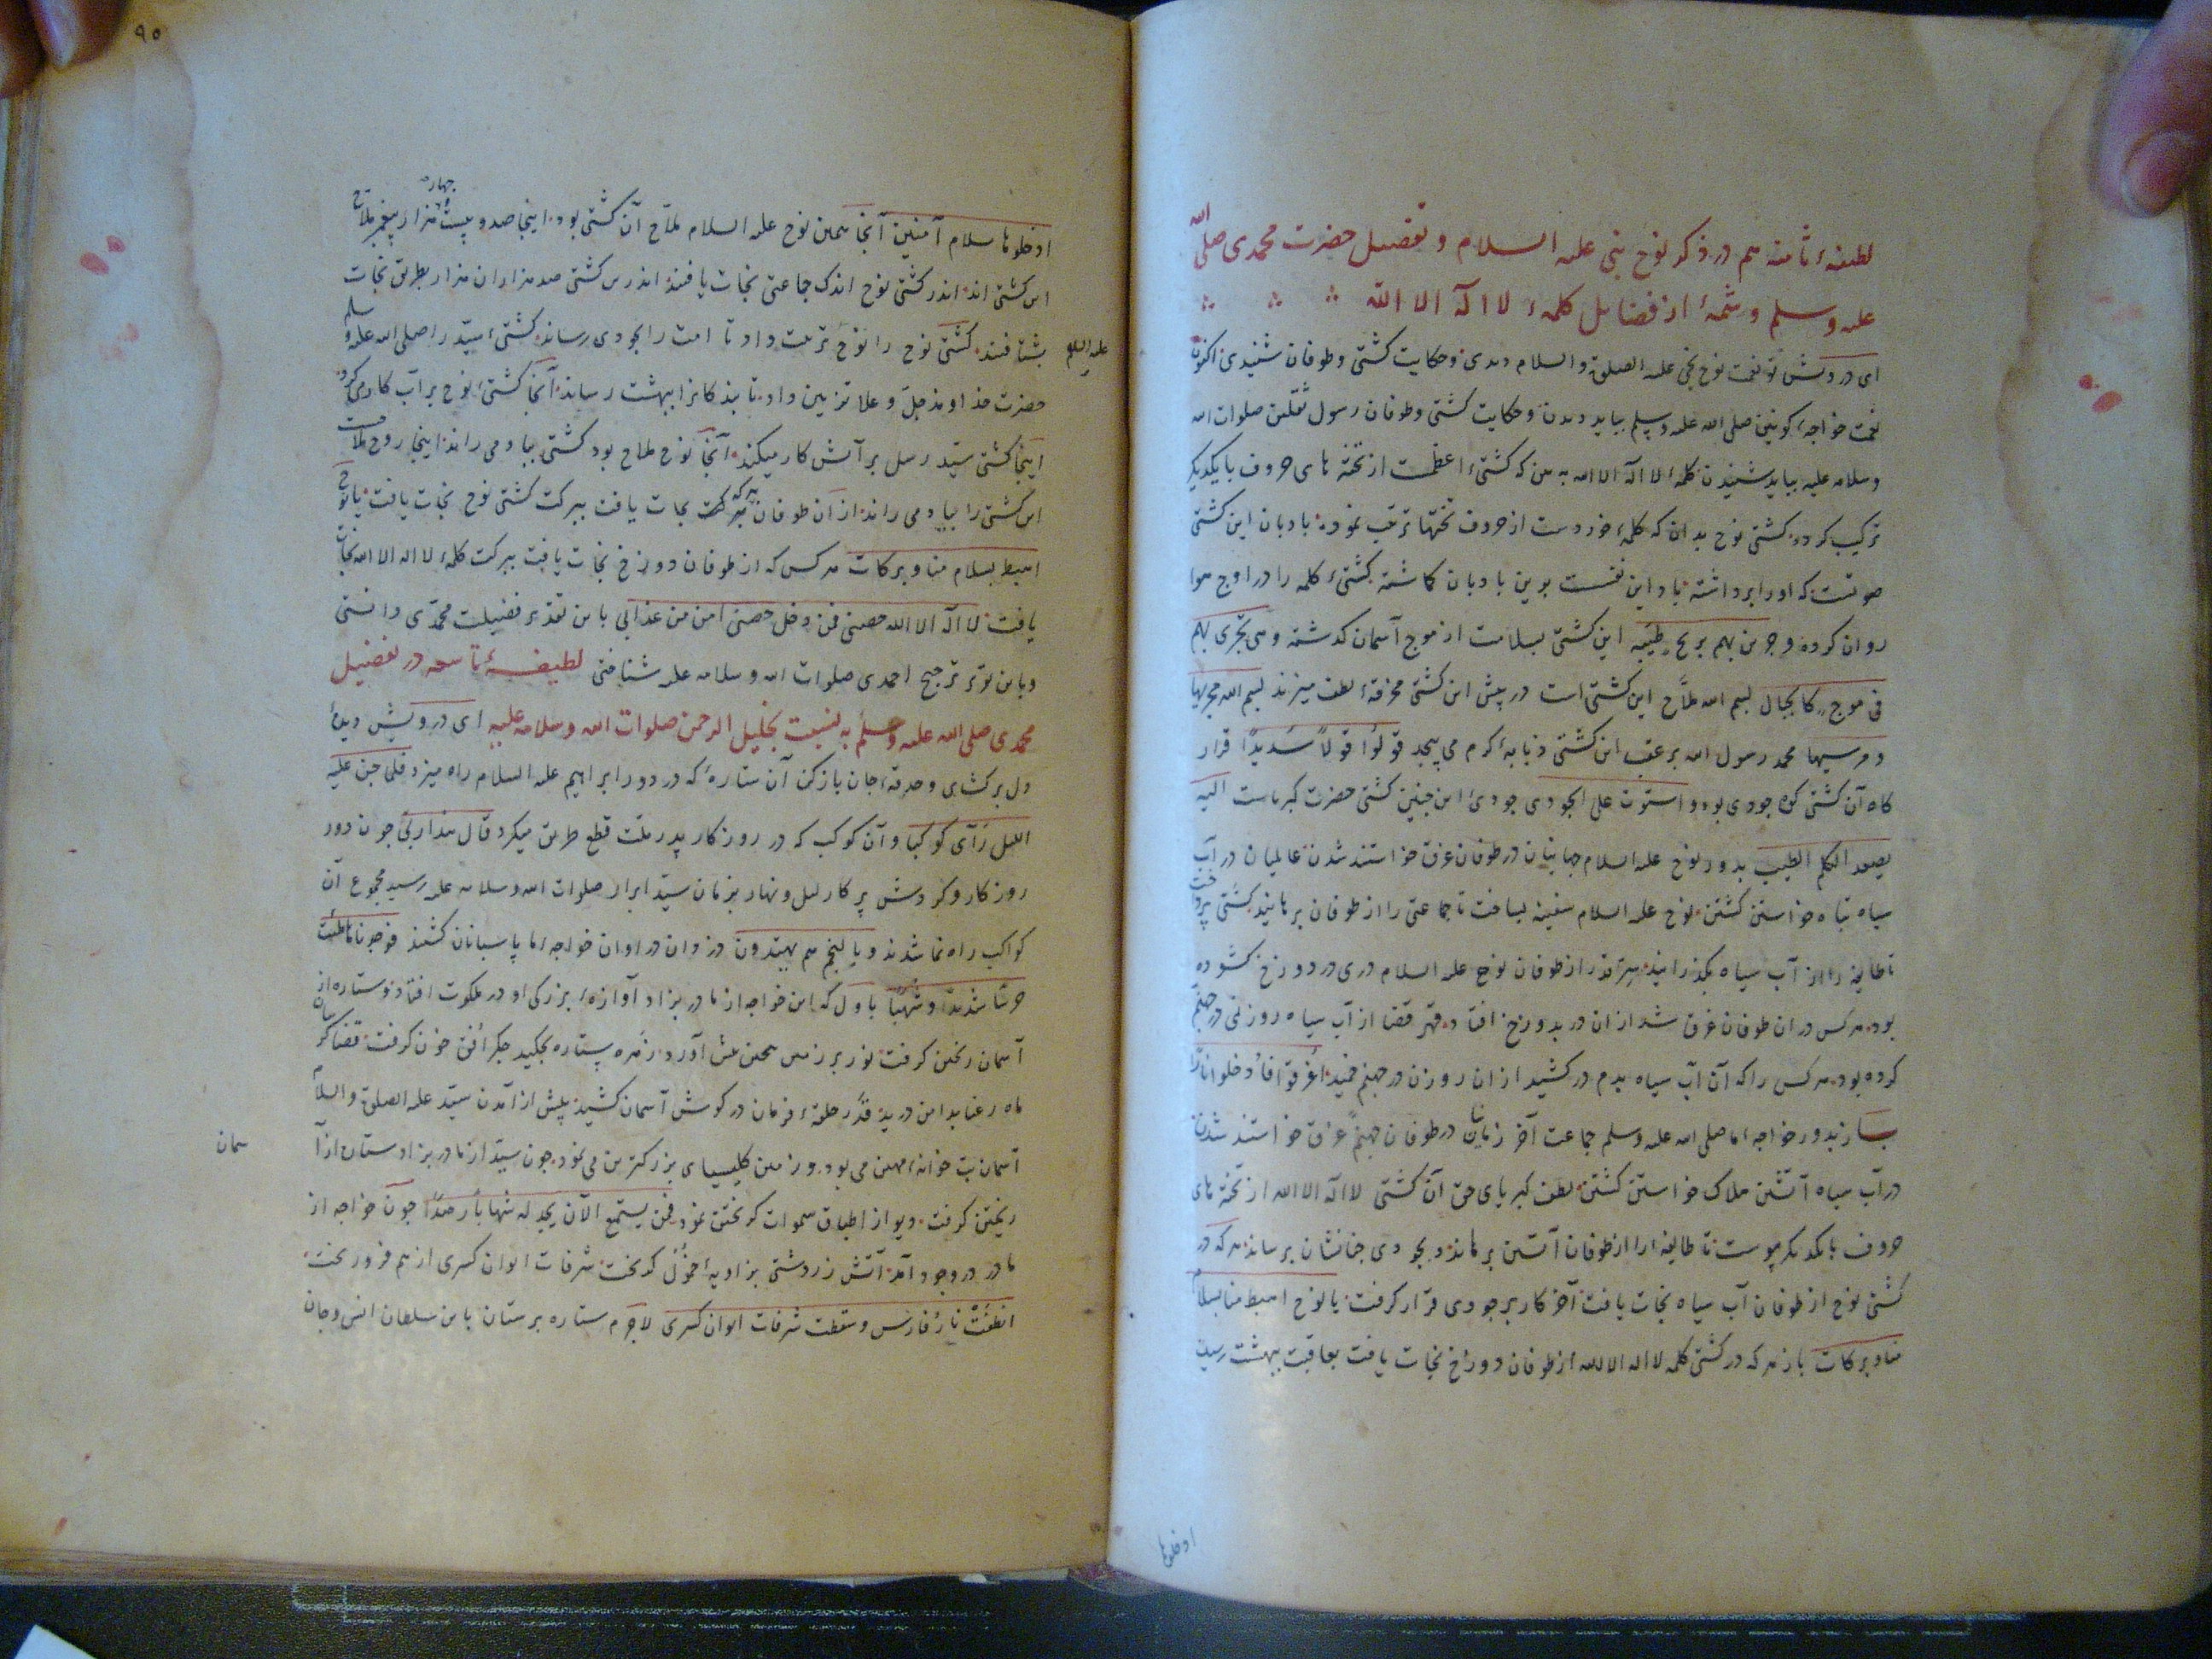 لطیفهٔ ثامنه هم در ذکر نوح نبی علیه السلام و تفضیل حضرت محمدی صلی الله
علیه و سلم و شمهٔ از فضایل کلمهٔ لا اله الا الله
ای درویش تو نعت نوح نجی علیه الصلوة و السلام دیدی و حکایت کشتی و طوفان شنیدی اکنون
نعت خواجهٔ کونین صلی الله علیه و سلم بباید دیدن و حکایت کشتی و طوفان رسول ثقلین صلوات الله
و سلامه علیه بباید شنیدن کلمهٔ لا اله الا الله به بین که کشتیٔ اعظمست از تخته های حروف با یکدیگر
ترکیب کرده کشتی نوح بدان که کلمهٔ خردست از حروف تختها ترتیب نموده بادبان این کشتی
صوتست که او را برداشته باد این نفسست بدین بادبان کماشته کشتیٔ کلمه را در اوج هوا
روان کرده و جرین بهم بریح طیبه این کشتی بسلامت از موج آسمان کذشته وهی تجری بهم
فی موج کالجبال بسم الله ملاح این کشتی است در پیش این کشتی لطف میزند بسم الله مجریها
و مرسیها محمد رسول الله بر عقب این کشتی کرم می پیچد قولوا قولاً سدیداً قرار
کاه آن کشتی کوه جودی بود و استوت علی الجودی جودیٔ این چنین کشتی حضرت کبریاست الیه
یصعد الکلم الطیب بدور نوح علیه السلام جهانیان در طوفان غرق خواستند شدن عالمیان در آب
سیاه تباه خواستن کشتن نوح علیه السلام سفینه بساخت تا جماعتی را از طوفان برهانید کشتی پرداخت
تا طایفهٔ را از آب سیاه بکذرانید از طوفان نوح علیه السلام دری در دوزخ کشوده
بود هرکس در ان طوفان غرق شد ازان در بدوزخ افتاد قهر قضا از آب سیاه روزنی در جهنم
کرده بود هرکس را که آن آب سیاه بدم در کشید ازان روزن در جهنم اغرقوا فادخلوا ناراً
باز بدور خواجهٔ ما صلی الله علیه و سلم جماعت آخر زمان در طوفان جهنم غرق خواستند شدن
در آب سیاه آتشین هلاک خواستن کشتن لطف کبریای حق آن کشتی لا اله الا الله از تخته های
حروف بایکدیکر پیوست تا طایفهٔ را از طوفان آتشین برهاند و بجودی جنانشان برساند هرکه در
کشتی نوح از طوفان آب سیاه نجات یافت آخر کار بر جودی قرار کرفت یا نوح اهبط منا بسلام
منا و برکات باز هرکه در کشتی کلمه لا اله الا الله از طوفان دوزخ نجات یافت بعاقبت ببهشت رسید
ادخلوها
۹۵
ادخلوها بسلام آمنین آنجا همین نوح علیه السلام ملاح آن کشتی بود اینجا صد و بیست و چهار هزار پیغمبر ملاح
این کشتی اند اندر کشتی نوح اندک جماعتی نجات یافتند اندرین کشتی صد هزاران هزار بطریق نجات
بشتافتند کشتی نوح را نوح ترتیب داد تا امت را بجودی رساند کشتیٔ سید را صلی الله علیه و سلم
حضرت خداوند جل و علا تزیین داد تا بندکانرا ببهشت رساند آنجا کشتیٔ نوح بر آب کار می کرد
اینجا کشتی سید رسل بر آتش کار میکند آنجا نوح ملاح بود کشتی بباد می راند اینجا روح ملاحست
این کشتی را بیاد می راند از آن طوفان هرکه نجات یافت ببرکت کشتی نوح نجات یافت یا نوح
اهبط بسلام منا و برکات هرکس که از طوفان دوزخ نجات یافت ببرکت کلمهٔ لا اله الا الله نجات
یافت لا اله الا الله حصنی فمن دخل حصنی امن من عذابی باین تقدیر فضیلت محمدی دانستی
و باین ترجیح احمدی صلوات الله و سلامه علیه شناختی لطیفهٔ تاسعه در تفضیل
محمدی صلی الله علیه و سلم به نسبت بخلیل الرحمن صلوات الله و سلامه علیه ای درویش دیدهٔ
دل برکشای و حدقهٔ جان باز کن آن ستارهٔ که در دور ابراهیم علیه السلام راه میزد فلما جن علیه
اللیل رآی کوکبا و آن کوکب که در روزکار پدر ملت قطع طریق میکرد قال هذا ربی چون دور
روزکار و کردش پرکار لیل و نهار بزمان سید ابرار صلوات الله و سلامه علیه رسید مجموع آن
کواکب راه نما شدند و بالنجم هم یهتدون دزدان در اوان خواجهٔ ما پاسبانان کشتند فوجدناها ملئت
حرسا شدیدا و شهبا باول که این خواجه از مادر بزاد آوازهٔ بزرکی او در ملکوت افتاد ستاره از
آسمان ریختن کرفت نور بر زمین آورد زهره بستاره بچکید جکر افق خون کرفت قضا
ماه رعنا بدامن درید قدر حلقهٔ فرمان در کوش آسمان کشید پیش از آمدن سید علیه الصلوة و السلام
آسمان بت خانهٔ مهین می بود و زمین کلیسیای بزرکترین می نمود چون سید از مادر بزاد ستاره از آسمان
ریختن کرفت دیو از اطباق سموات کریختن نمود فمن یستمع الآن یجد له شهابا رصدا چون خواجه از
مادر در وجود آمد آتش زردشتی بزاویه کریخت شرفات ایوان کسری از هم فرو ریخت
انطفئت نار فارس و سقطت شرفات ایوان کسری لاجرم ستاره پرستان باین سلطان انس و جان